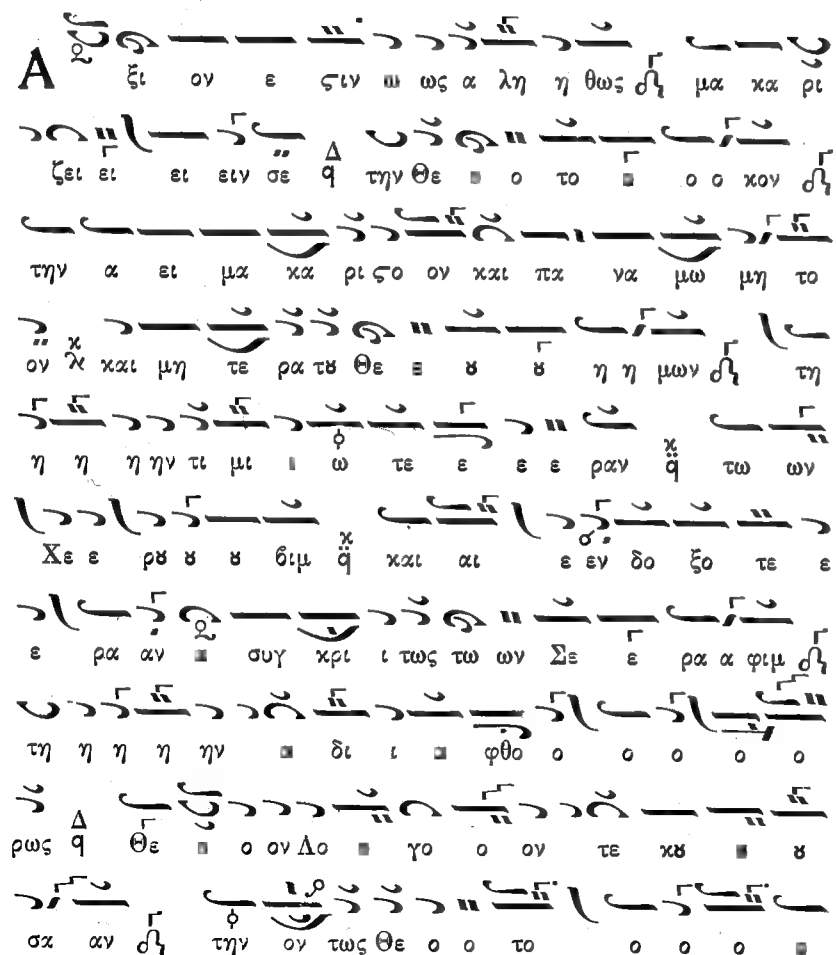 Α ξι ον ε ϛιν ως α λη η θως μα κα ρι
ζει ει ει ειν σε Δ q την Θε ο το ο ο κον
την α ει μα κα ρι ϛο ον και πα να μω μη το
ον κ λ και μη τε ρα τȣ Θε ȣ ȣ η η μων τη
η η η ην τι μι ι ω τε ε ε ε ραν κ q̈ τω ων
Χε ε ρȣ ȣ ȣ βιμ κ q̈ και αι ε εν δο ξο τε ε
ε ρα αν συγ κρι ι τως τω ων Σε ε ρα α φιμ
τη η η η ην δι ι φθο ο ο ο ο ο
ρως Δ q Θε ο ον Λο γο ο ον τε κȣ ȣ
σα αν την ον τως Θε ο ο το ο ο ο